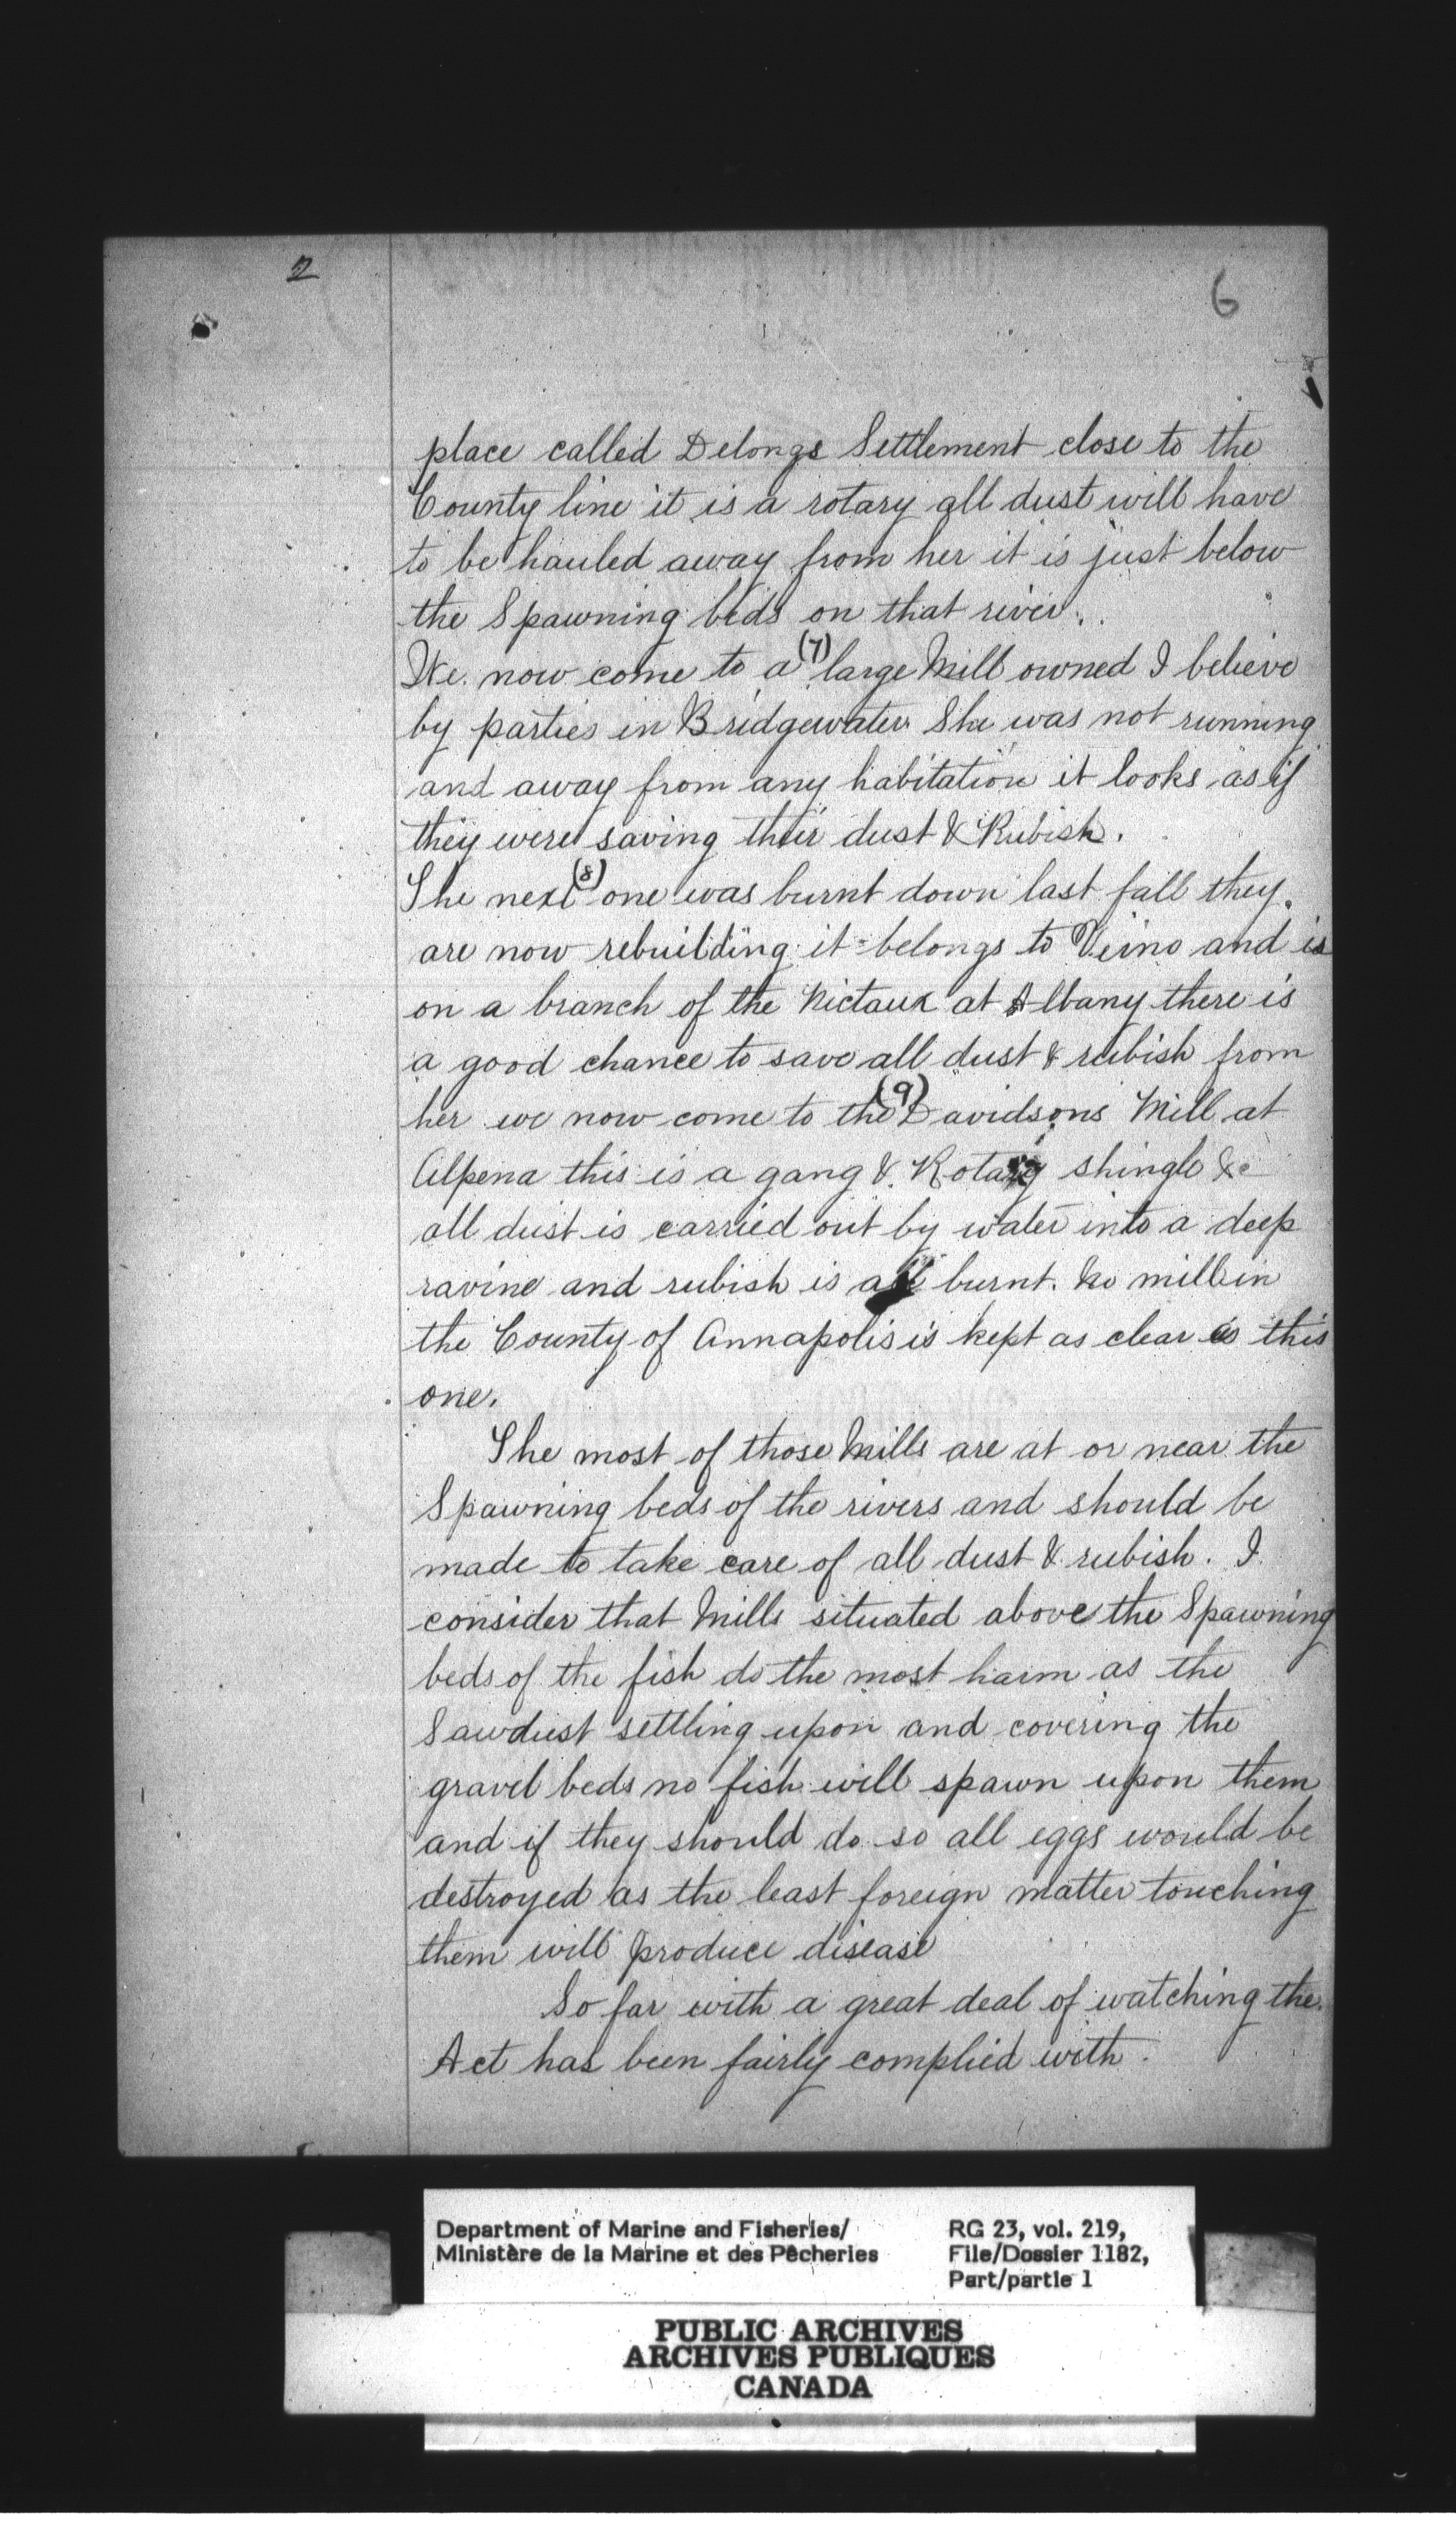 2
6
place called Delongs Settlement close to the
County line it is a rotary all dust will have
to be hauled away from her it is just below
the Spawning beds on that river.
We now come to a (7) large Mill owned I believe
by parties in Bridgewater She was not running
and away from any habitation it looks as if
they were saving their dust & Rubish.
The next (8) one was burnt down last fall they
are now rebuilding it belongs to Veino and is
on a branch of the Nictaux at Albany there is
a good chance to save all dust & rubish from
her we now come to the (9) Davidsons Mill at
Alpena this is a gang & Rotary shingle &c
all dust is carried out by water into a deep
ravine and rubish is all burnt. No mill in
the County of Annapolis is kept as clear as this
one.
The most of those Mills are at or near the
Spawning beds of the rivers and should be
made to take care of all dust & rubish. I
consider that Mills situated above the Spawning
beds of the fish do the most harm as the
Sawdust settling upon and covering the
gravel beds no fish will spawn upon them
and if they should do so all eggs would be
destroyed as the least foreign matter touching
them will produce disease
So far with a great deal of watching the
Act has been fairly complied with.
Department of Marine and Fisheries/
Ministère de la Marine et des Pêcheries
RG 23, vol. 219,
File/Dossier 1182,
Part/partie 1
PUBLIC ARCHIVES
ARCHIVES PUBLIQUES
CANADA